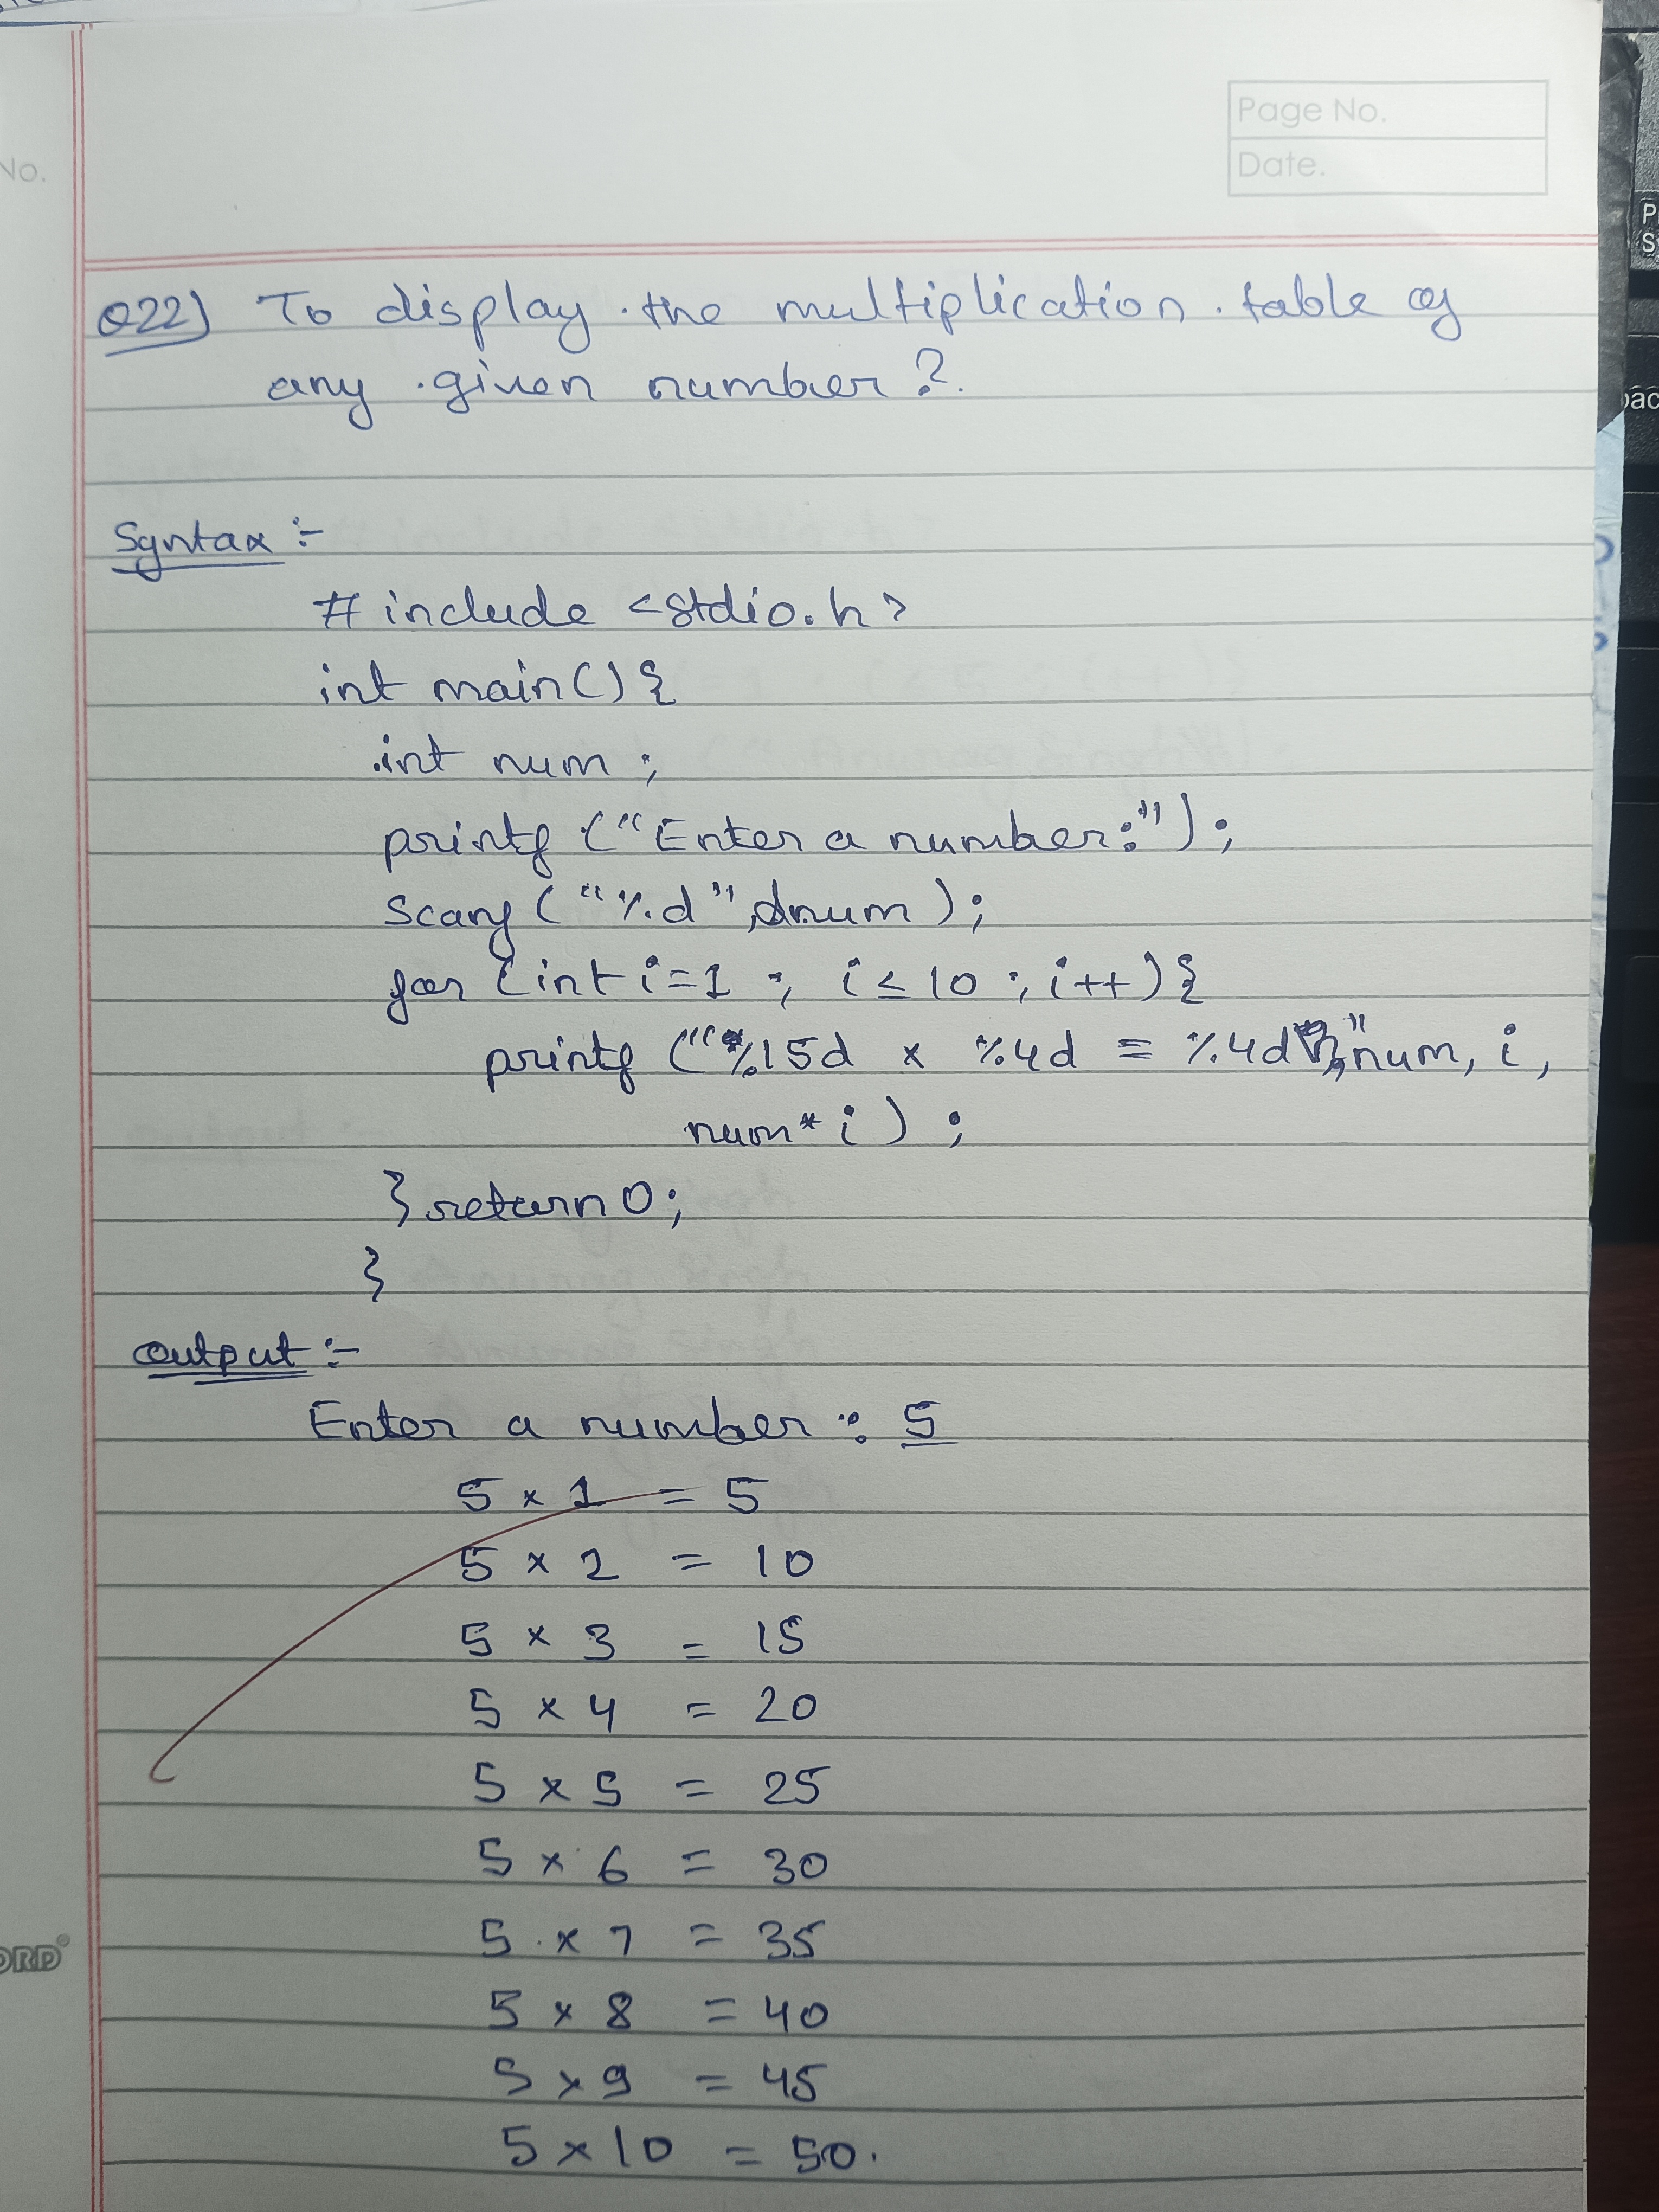 No.
Page No.
Date.
P
S
pac
Q22) To display the multiplication table of
any given number?
Syntax :-
# include <stdio.h>
int main() {
int num ;
printf ("Enter a number:") ;
scanf ("%d", &num) ;
for (int i=1 ; i ≤ 10 ; i++) {
printf ("%15d x %4d = %4d\n", num, i,
num * i) ;
} return 0;
}
Output :-
Enter a number : 5
5 x 1 = 5
5 x 2 = 10
5 x 3 = 15
5 x 4 = 20
5 x 5 = 25
5 x 6 = 30
5 x 7 = 35
ORD
5 x 8 = 40
5 x 9 = 45
5 x 10 = 50.